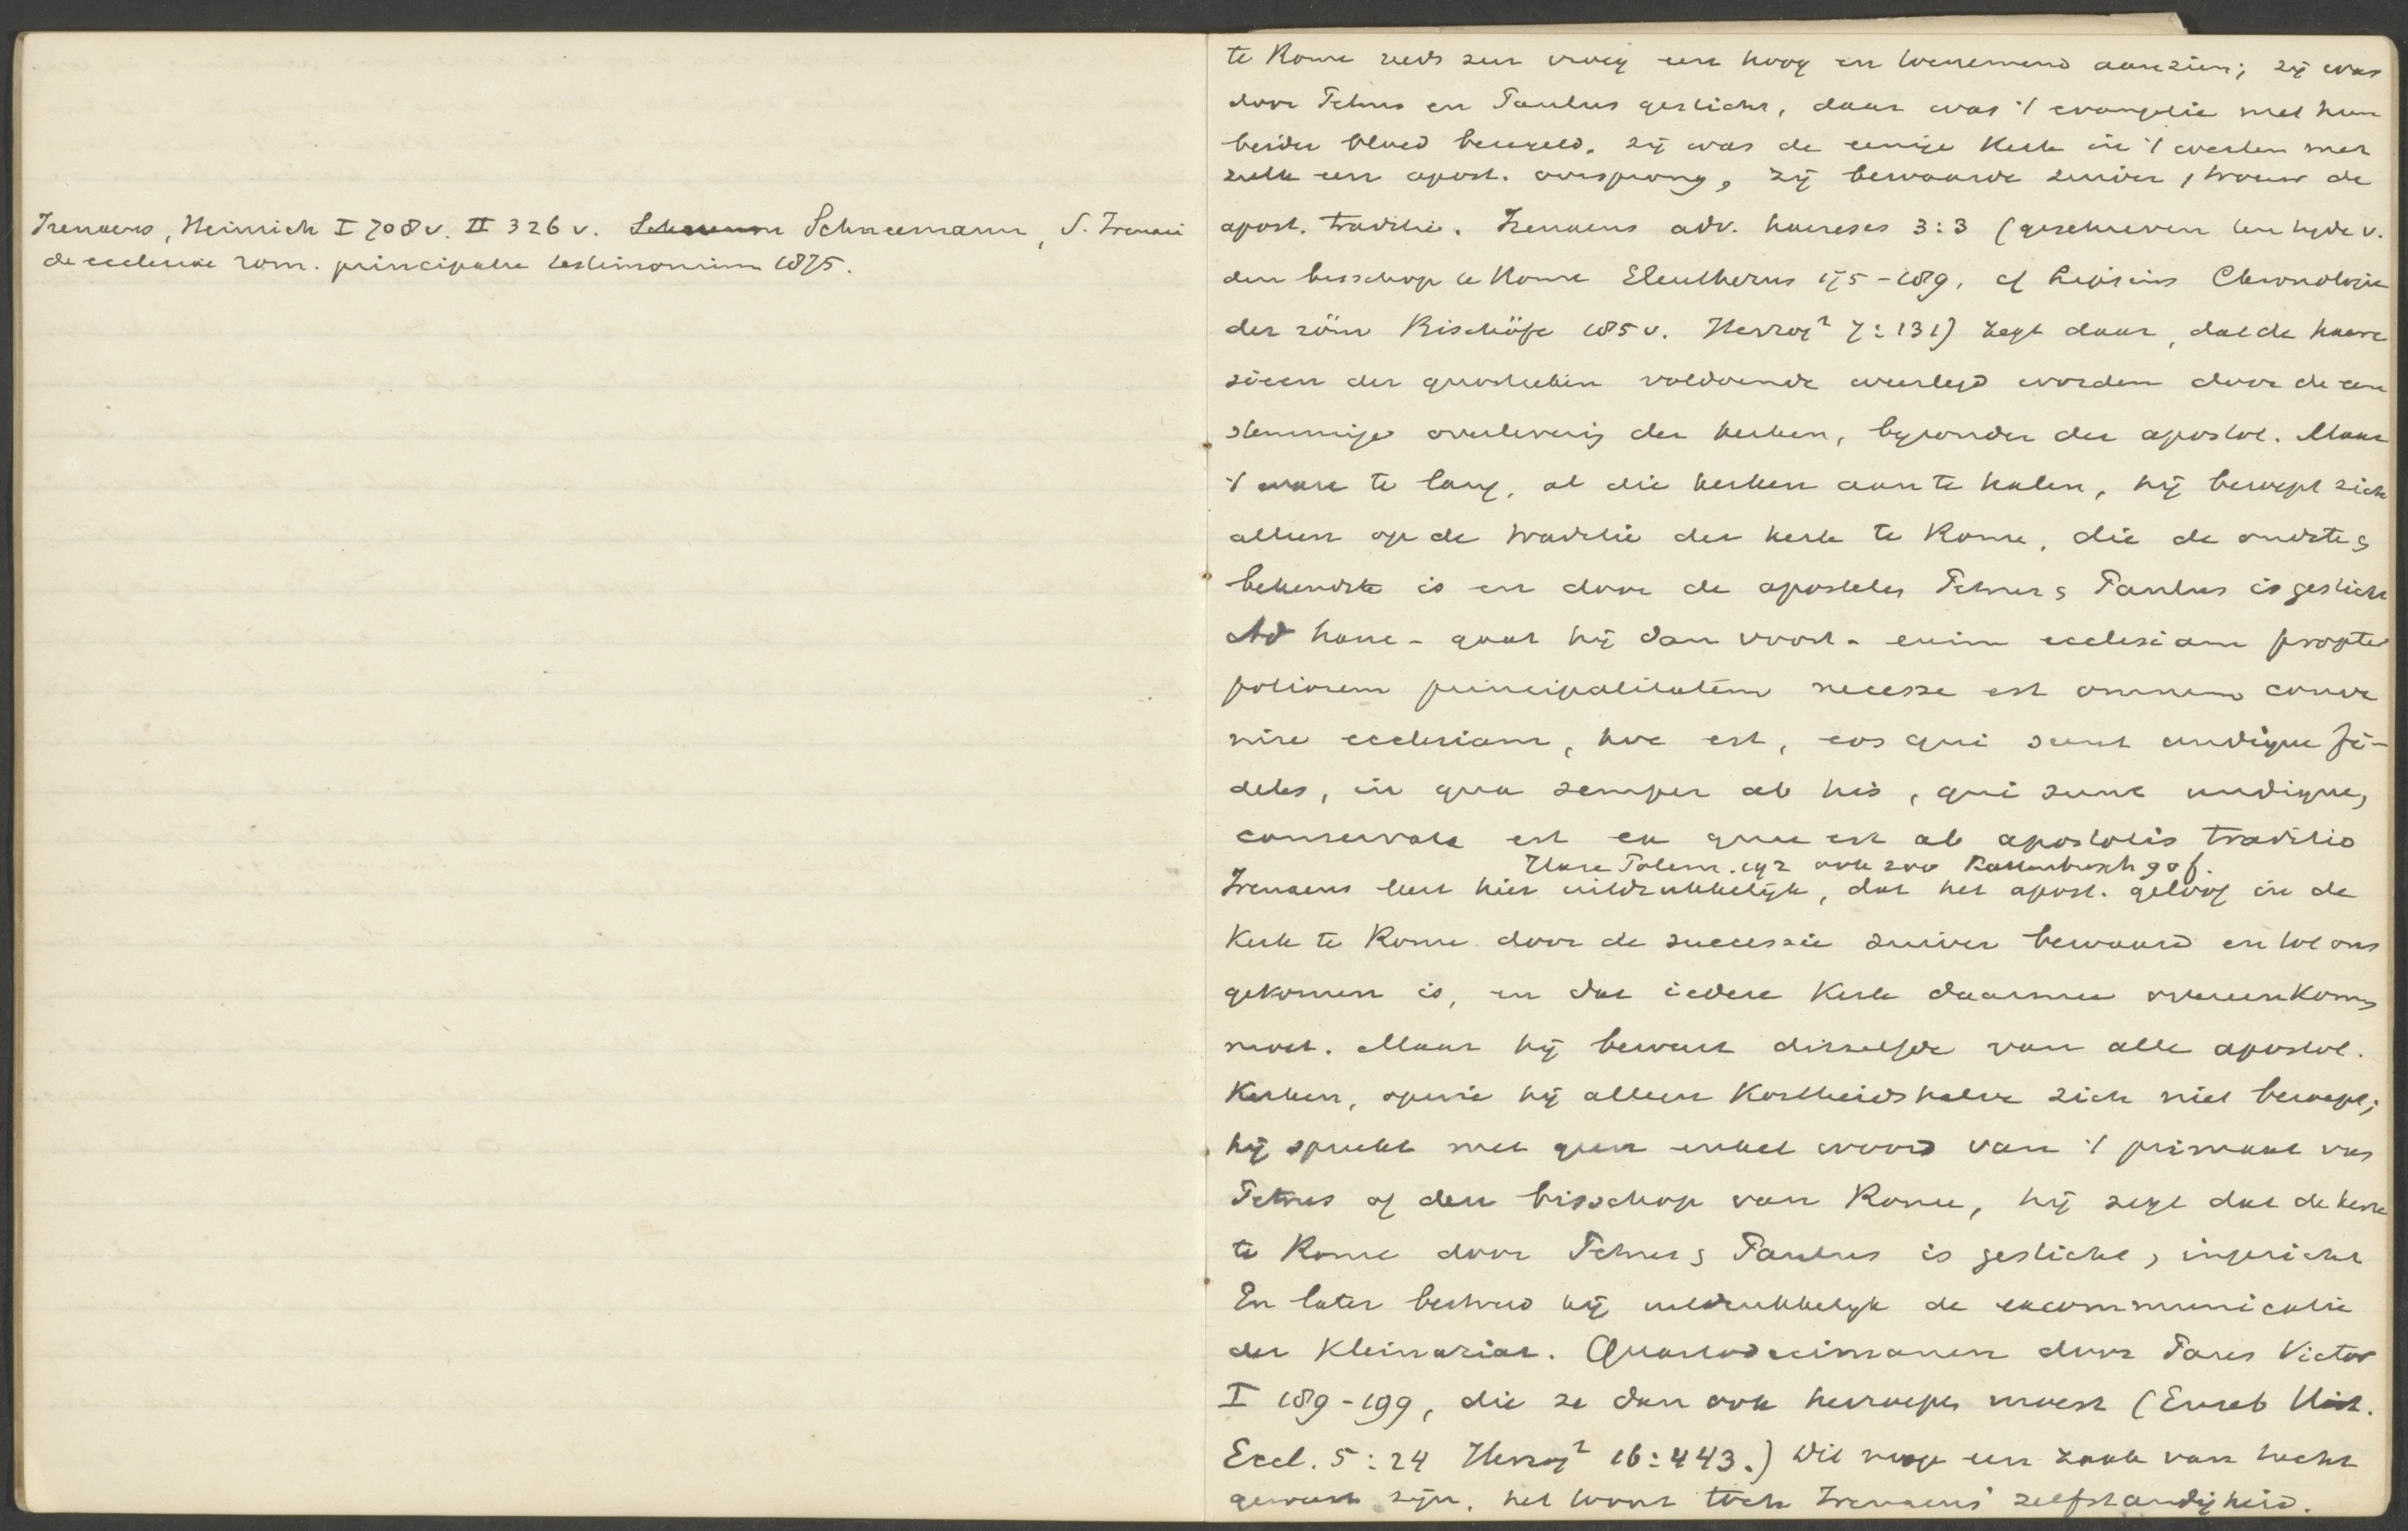 Irenaeus, Heinrich I 708 v. II 326 v. Schneemann, S. Irenaei
de ecclesiae rom. principatu testimonium 1875.
te Rome reeds zeer vroeg een hoog en toenemend aanzien; zij was
door Petrus en Paulus gesticht, daar was 't evangelie met hun
beider bloed bezegeld, zij was de eenige kerk in 't westen met
zulk een apost. oorsprong, zij bewaarde zuiver, trouw de
apost. traditie. Irenaeus adv. haereses 3:3 (geschreven ten tijde v.
den bisschop te Rome Eleutherus 175-189, cf Lipsius Chronologie
der röm Bischöfe 185 v. Herzog² 7:131) zegt daar, dat de haere
sieen der gnostieken voldoende weerlegd worden door de een
stemmige overlevering der kerken, byzonder der apostol. Maar
't ware te lang, al die kerken aan te halen, hij beroept zich
alleen op de traditie der kerk te Rome, die de oudste &
bekendste is en door de apostelen Petrus & Paulus is gesticht
Ad hanc - gaat hij dan voort - enim ecclesiam propter
potiorem principalitatem necesse est omnem conve
nire ecclesiam, hoc est, eos qui sunt undique fi-
deles, in qua semper ab his, qui sunt undique,
conservata est ea quae est ab apostolis traditio
Polem. 192 ook zoo Kattenbusch 90 f.
Irenaeus leert hier uitdrukkelijk, dat het apost. geloof in de
Kerk te Rome door de successie zuiver bewaard en tot ons
gekomen is, en dat iedere Kerk daarmee overeenkomen
moet. Maar hij beweert ditzelfde van alle apostol.
Kerken, op wie hij alleen kortheidshalve zich niet beroept;
hij spreekt met geen enkel woord van 't primaat van
Petrus of den bisschop van Rome, hij zegt dat de kerk
te Rome door Petrus & Paulus is gesticht, ingericht
En later bestreed hij uitdrukkelyk de excommunicatie
der Kleinaziat. Quartodecimanen door Paus Victor
I 189-199, die ze dan ook herroepen moest (Euseb Hist.
Eccl. 5:24 Herzog² 16:443.) Dit moge een zaak van tucht
geweest zijn, het toont toch Irenaeus' zelfstandigheid.